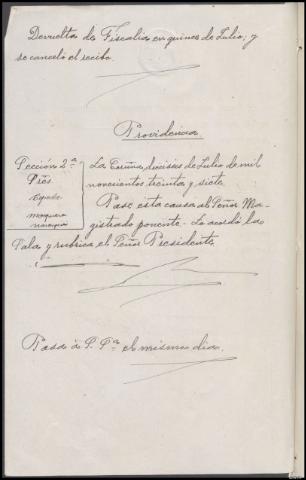 Devuelta de Fiscalia en quince de Julio; y
se canceló el recibo.
Providencia
Sección 2ª
Sres
La Coruña, dieciseis de Julio de mil
novecientos treinta y siete.
Pase esta causa al Señor Ma-
gistrado ponente. Lo acordó la
Sala y rubrica el Señor Presidente
Pasa a S. Sª el mismo dia.